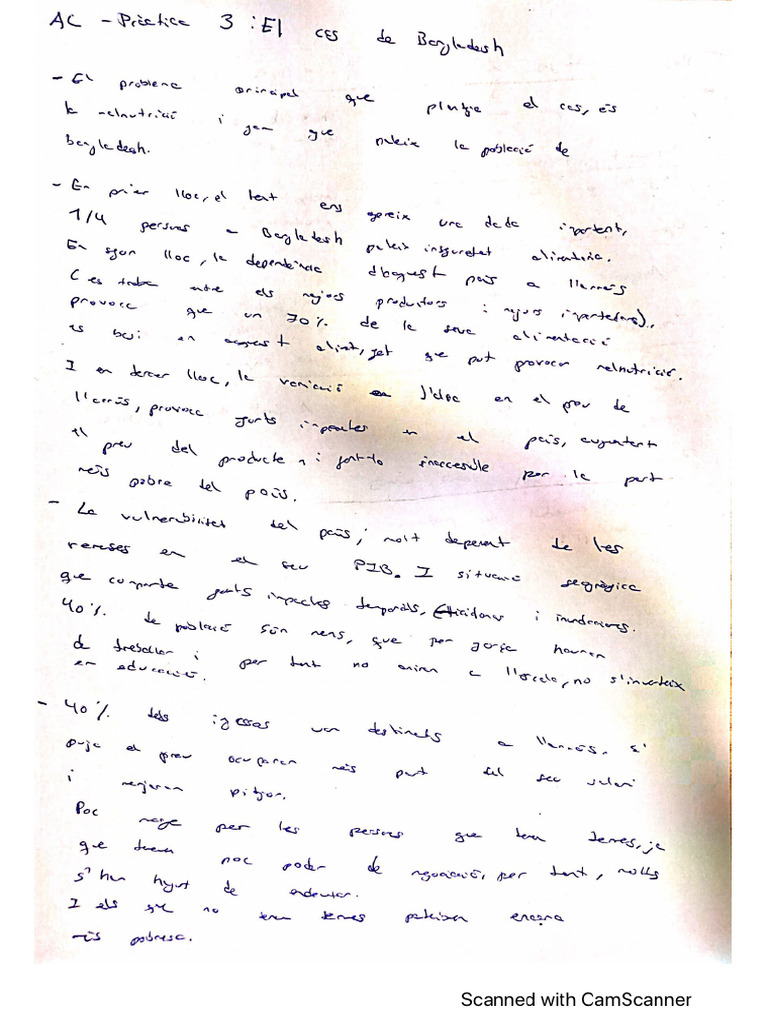 AC - Pràctica 3 : El cas de Bangladesh
- El problema principal que planteja el cas, és
la malnutrició i gam que pateix la població de
bangladesh.
- En primer lloc, el text ens apareix una dada important,
1/4 persones a Bangladesh pateix inseguretat alimentària.
En segon lloc, la dependència d'aquest país a l'arròs
(es troba entre els majors productors i majors importadors),
provoca que un 70% de la seva alimentació
es basi en aquest aliment, fet que pot provocar malnutrició.
I en tercer lloc, la variació en el preu de
l'arròs, provoca forts impactes en el país, augmentant
el preu del producte i fent-lo inaccessible per la part
més pobre del país.
- La vulnerabilitat del país, molt dependent de les
remeses en el seu PIB. I situació geogràfica
que comporta forts impactes temporals, ciclons i inundacions.
40% de població són nens, que per força hauran
de treballar i per tant no aniran a l'escola, no s'inverteix
en educació.
- 40% dels ingressos van destinats a l'arròs, si
puja el preu ocuparan més part del seu salari
i menjaran pitjor.
Poc marge per les persones que tenen terres, ja
que tenen poc poder de negociació, per tant, molts
s'han hagut de endeutar.
I els que no tenen terres pateixen encara
més pobresa.
Scanned with CamScanner